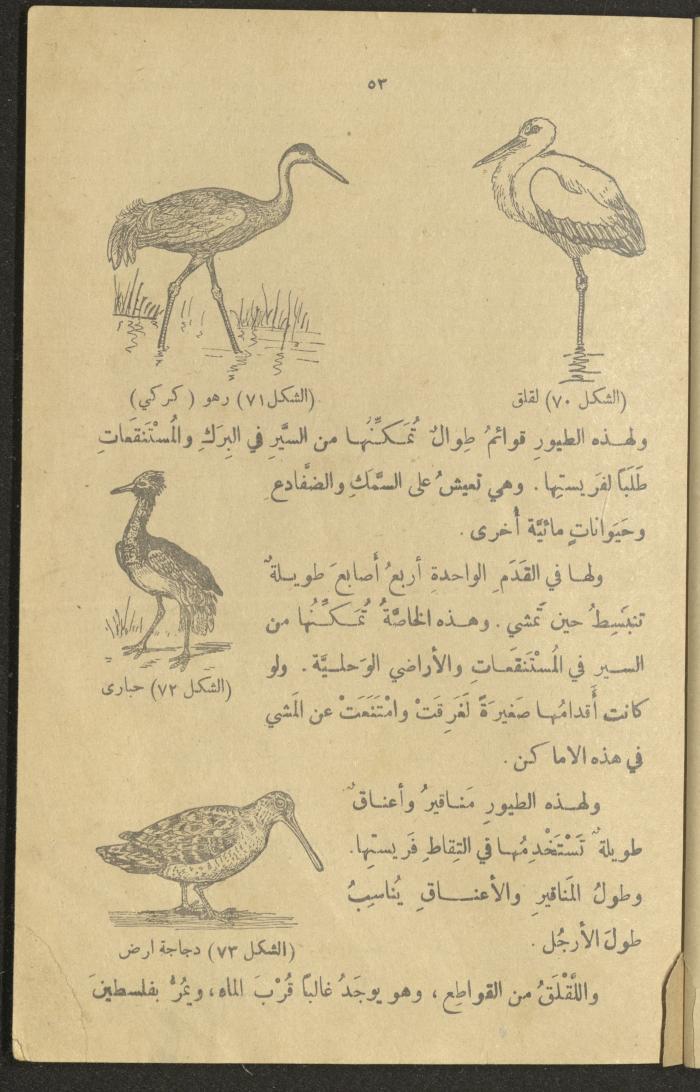 ٥٣
(الشكل ٧٠) لقلق
(الشكل ٧١) رهو (كركي)
ولهذه الطيورِ قوائمُ طِوالٌ تُمَكِّنُها من السَّيْرِ في البِرَكِ والمُسْتَنقَعاتِ
طَلَباً لفَريستِها . وهي تعيشُ على السَّمَكِ والضَّفادعِ
وحَيَواناتٍ مائيَّة أُخرى .
ولها في القَدَمِ الواحدةِ أربعُ أَصابعَ طويلةٌ
تنبَسِطُ حين تَمشي . وهذه الخاصَّةُ تُمَكِّنُها من
السير في المُسْتَنقَعاتِ والأراضي الوَحليَّة . ولو
(الشكل ٧٢) حبارى
كانت أَقدامُها صَغيرَةً لَغَرِقَتْ وامْتَنَعَتْ عن المَشي
في هذه الاماكن .
ولهذه الطيورِ مَناقيرُ وأعناقٌ
طويلةٌ تَسْتَخْدِمُها في التِقاطِ فَريستِها .
وطولُ المَناقيرِ والأعناقِ يُناسِبُ
طولَ الأرجُل .
(الشكل ٧٣) دجاجة ارض
واللَّقْلَقُ من القواطِع ، وهو يوجَدُ غالباً قُرْبَ الماءِ ، ويمُرُّ بفلسطينَ